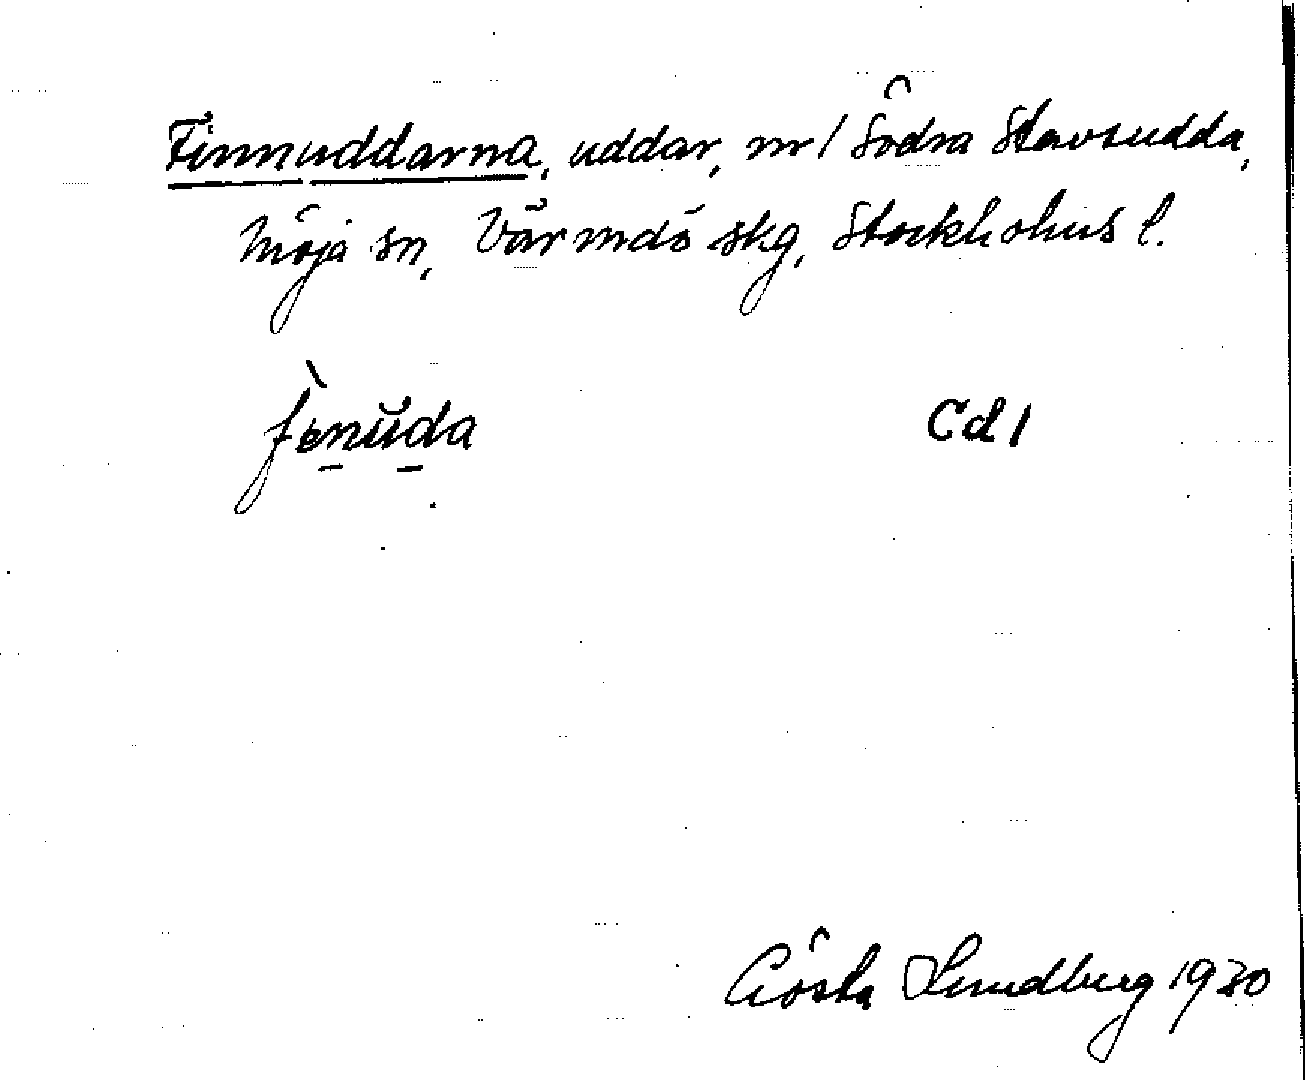 Finnuddarna, uddar, nr 1 Södra Stavsudda,
Möja sn, Värmdö skg, Stockholms l.
fènŭda Cd 1
Gösta Lundberg 1930